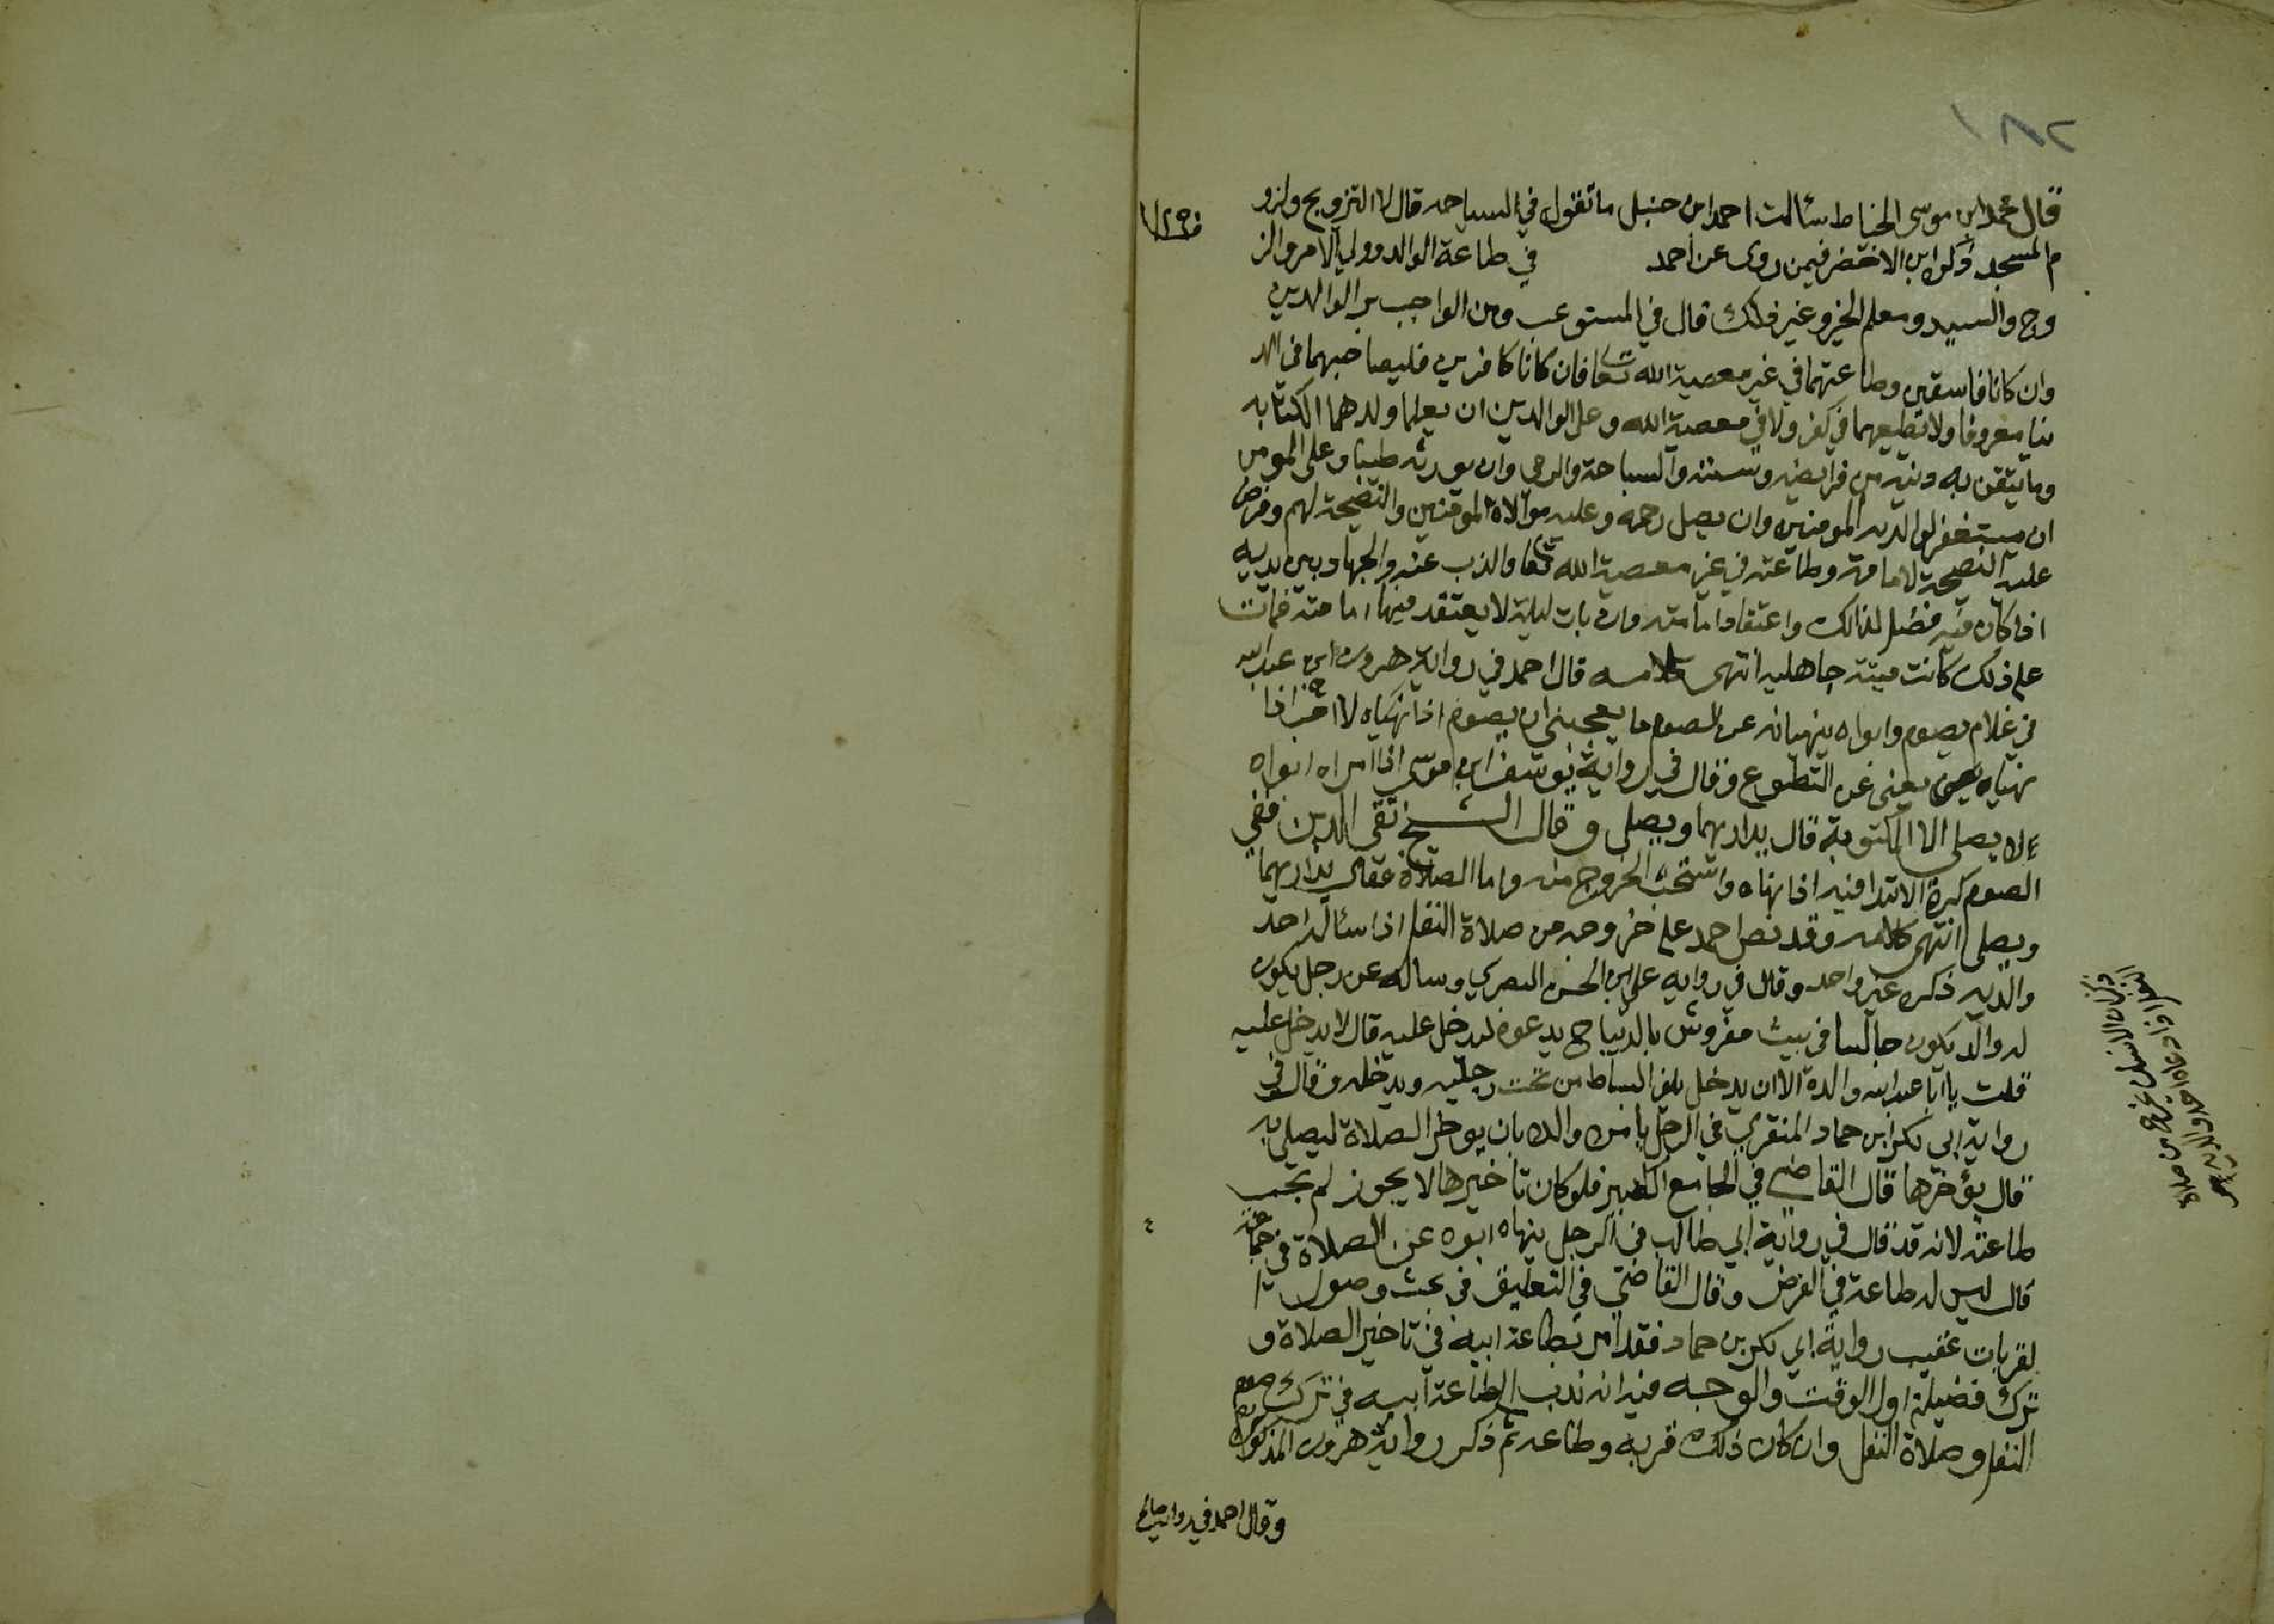 ٢٨١
قال محمد ابن موسى الخياط سئالت احمد ابن حنبل ما تقول في السياحه قال لا التزويج ولزو
م المسجد ذكره ابن الاخضر فيمن روى عن احمد في طاعة الوالد وولي الامر والز
وج والسيد ومعلم الخير وغير ذلك قال في المستوعب ومن الواجب بر الوالدين
وان كانا فاسقين وطاعتهما في غير معصية الله تعا فان كانا كافرين فليصاحبهما في الد
نيا معروفا ولا تطيعهما في كفر ولا في معصية الله وعلى الوالدين ان يعلما ولدهما الكتابه
وما يتقن به دينه من فرايضه وسننه والسباحة والرمي وان يورثه طيبا وعلى المومن
ان يستغفر لوالديه المومنين وان يصل رحمه وعليه موالاة المومنين والنصيحة لهم وفرض
عليه النصيحة لامامه وطاعته في غير معصية الله تعا والذب عنه والجهاد بين يديه
اذا كان فيه فضل لذالك واعتقاد امامته وان بات ليلة لا يعتقد فيها امامته فمات
على ذلك كانت ميتته جاهليه انتهى كلامه قال احمد في رواية هرون ابن عبد الله
في غلام يصوم وابواه ينهيانه عن الصوم ما يعجبني ان يصوم اذا نهياه لا احب اذا
نهياه يعني عن التطوع وقال في رواية يوسف ابن موسى اذا امراه ابواه
ء لا يصلي الا المكتوبة قال يداريهما ويصلي وقال الشيخ تقي الدين ففي
الصوم كره الابتدا فيه اذا نهاه واستحب الخروج منه واما الصلاة فقال يداريهما
ويصلي انتهى كلامه وقد نص احمد على خروجه من صلاة النفل اذا سئاله احد
والديه ذكره غير واحد وقال في روايه علي ابن الحسن البصري وساله عن رجل يكون
له والد يكون جالسا في بيت مفروش بالديباج يدعوه ليدخل عليه قال لا يدخل عليه
قلت يا ابا عبد الله والده الا ان يدخل يلف البساط من تحت رجليه ويدخله وقال في
رواية ابي بكر ابن حماد المنقري في الرجل يامره والده بان يوخر الصلاة ليصلي به
قال يؤخرها قال القاضي في الجامع الكبير فلو كان تاخيرها لا يجوز لم تجب
طاعته لانه قد قال في رواية ابي طالب في الرجل ينهاه ابوه عن الصلاة في جماعة
قال ليس له طاعة في الفرض وقال القاضي في التعليق في بحث وصول ا
لقربات عقيب رواية ابي بكر بن حماد فقد امر بطاعة ابيه في تاخير الصلاة و
ترك فضيلة اول الوقت والوجه فيه انه ندب الى طاعة ابيه في ترك صوم
النفل وصلاة النفل وان كان ذلك قربه وطاعه ثم ذكر رواية هرون المذكوره
وقال احمد في رواية صالح